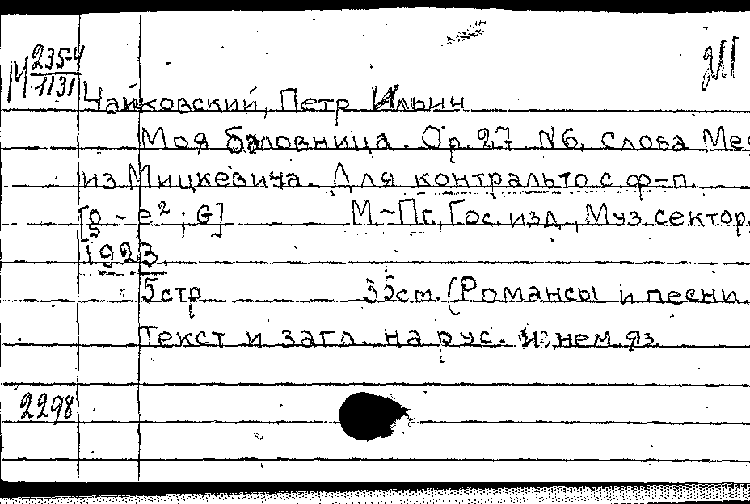 М 235-4
1131
Чайковский, Петр Ильич
Моя баловница. Op. 27 N6. Слова Ме
из Мицкевича. Для контральто с ф-п.
[ - e²; G] М-Пг, Гос. изд, Муз. сектор.
1923.
5 стр 35 см. (Романсы и песни
Текст и загл. на рус. и нем яз.
2298